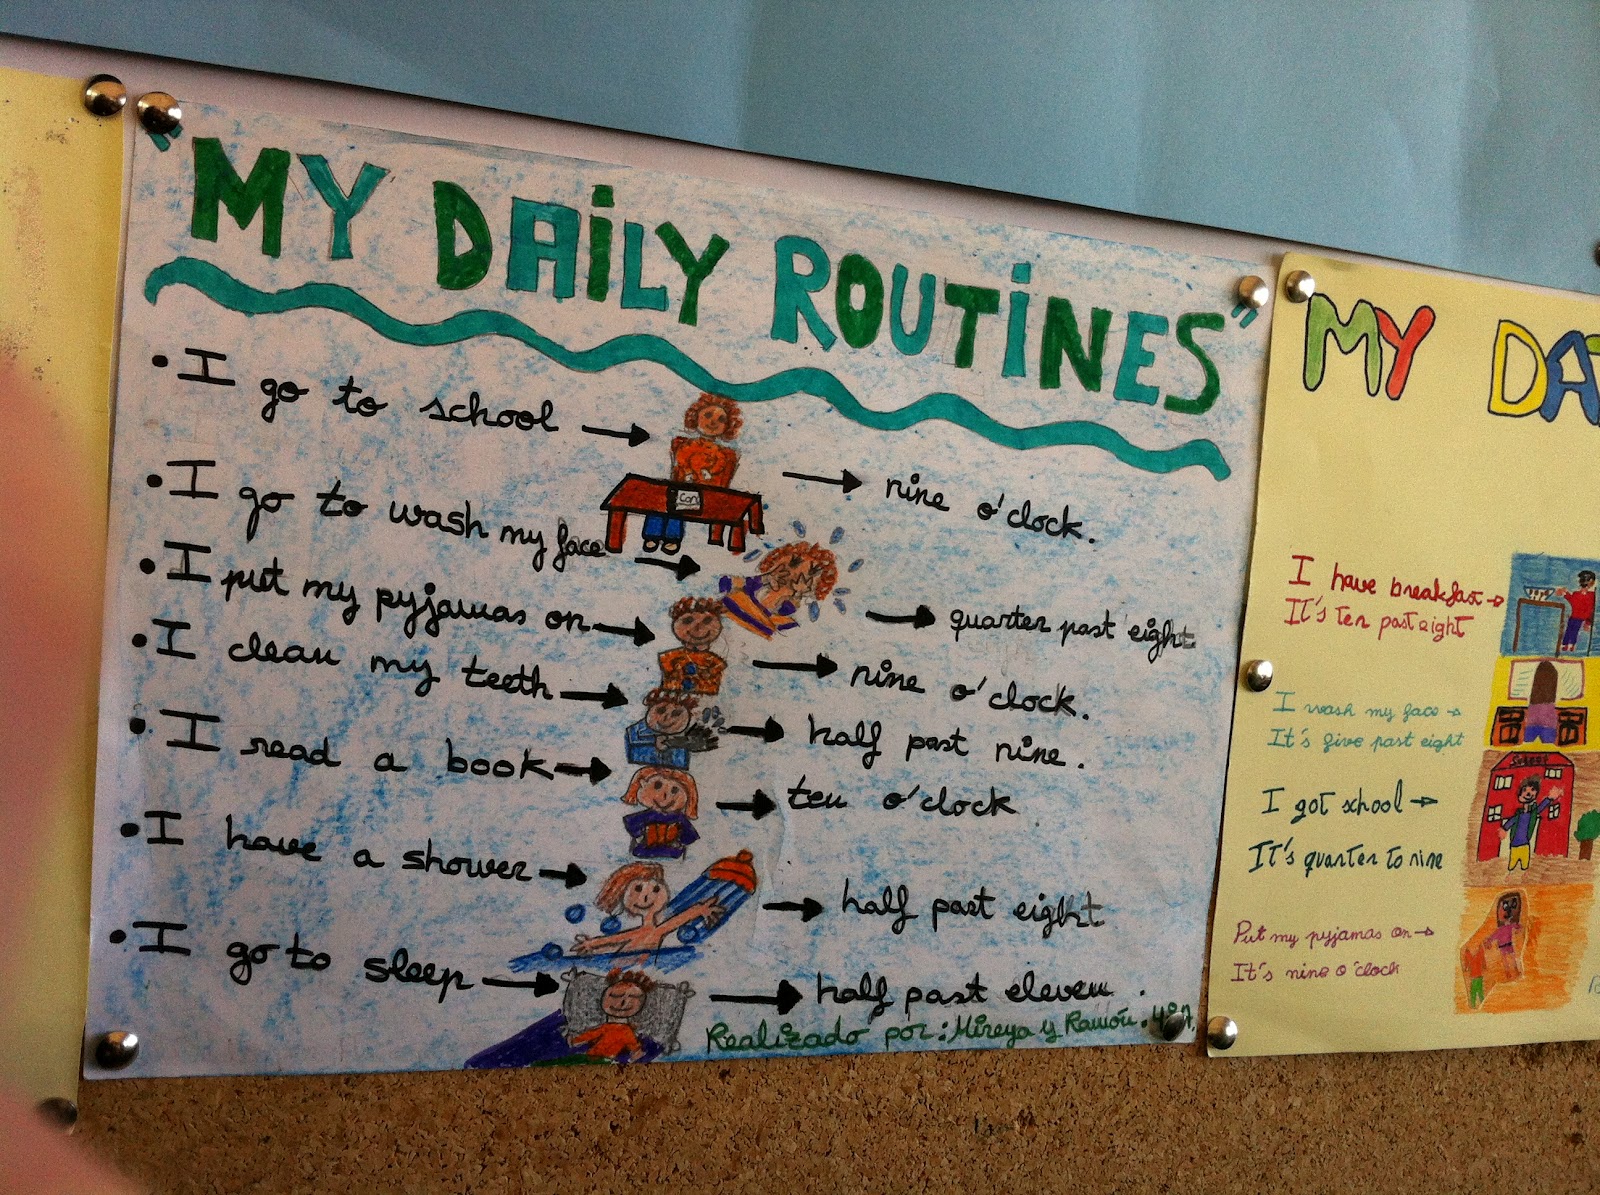 "MY DAILY ROUTINES"
• I go to school → nine o'clock.
• I go to wash my face → quarter past eight
• I put my pyjamas on → nine o'clock.
• I clean my teeth → half past nine.
• I read a book → ten o'clock
• I have a shower → half past eight
• I go to sleep → half past eleven.
Realizado por: Mireya y Ramón. 4ºA.
MY DA
I have breakfast →
It's ten past eight
I wash my face →
It's five past eight
SCHOOL
I got school →
It's quarter to nine
Put my pyjamas on →
It's nine o'clock